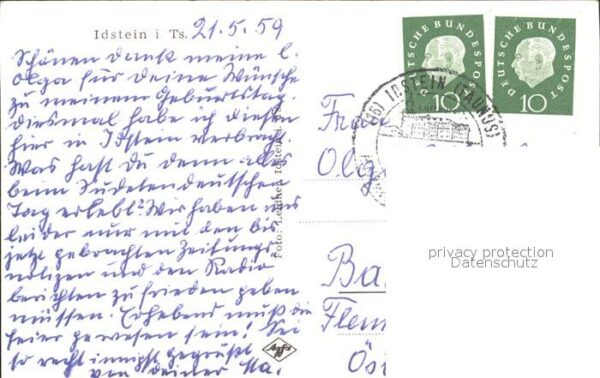 Idstein i Ts. 21.5.59
Schönen Dank meine l.
Olga für Deine Wünsche
zu meinem Geburtstag,
diesmal habe ich diesen
hier in Idstein verbracht.
Was hast du denn alles
beim Sudeten deutschen
Tag erlebt? Wir haben uns
leider nur mit den bis
jetzt gebrachten Zeitungs
notizen und den Radio
berichten zufrieden geben
müssen. Erhebend muß die
Feier gewesen sein! Sei
so recht innigst gegrüßt
von deiner
Foto: Idstein
Agfa
DEUTSCHE BUNDESPOST
10
DEUTSCHE BUNDESPOST
10
(16) IDSTEIN (TAUNUS)
Frau
Olg
Ba
Flem
Öst
privacy protection
Datenschutz